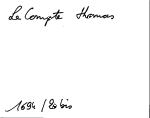 Le Compte Thomas
1694/20 bis